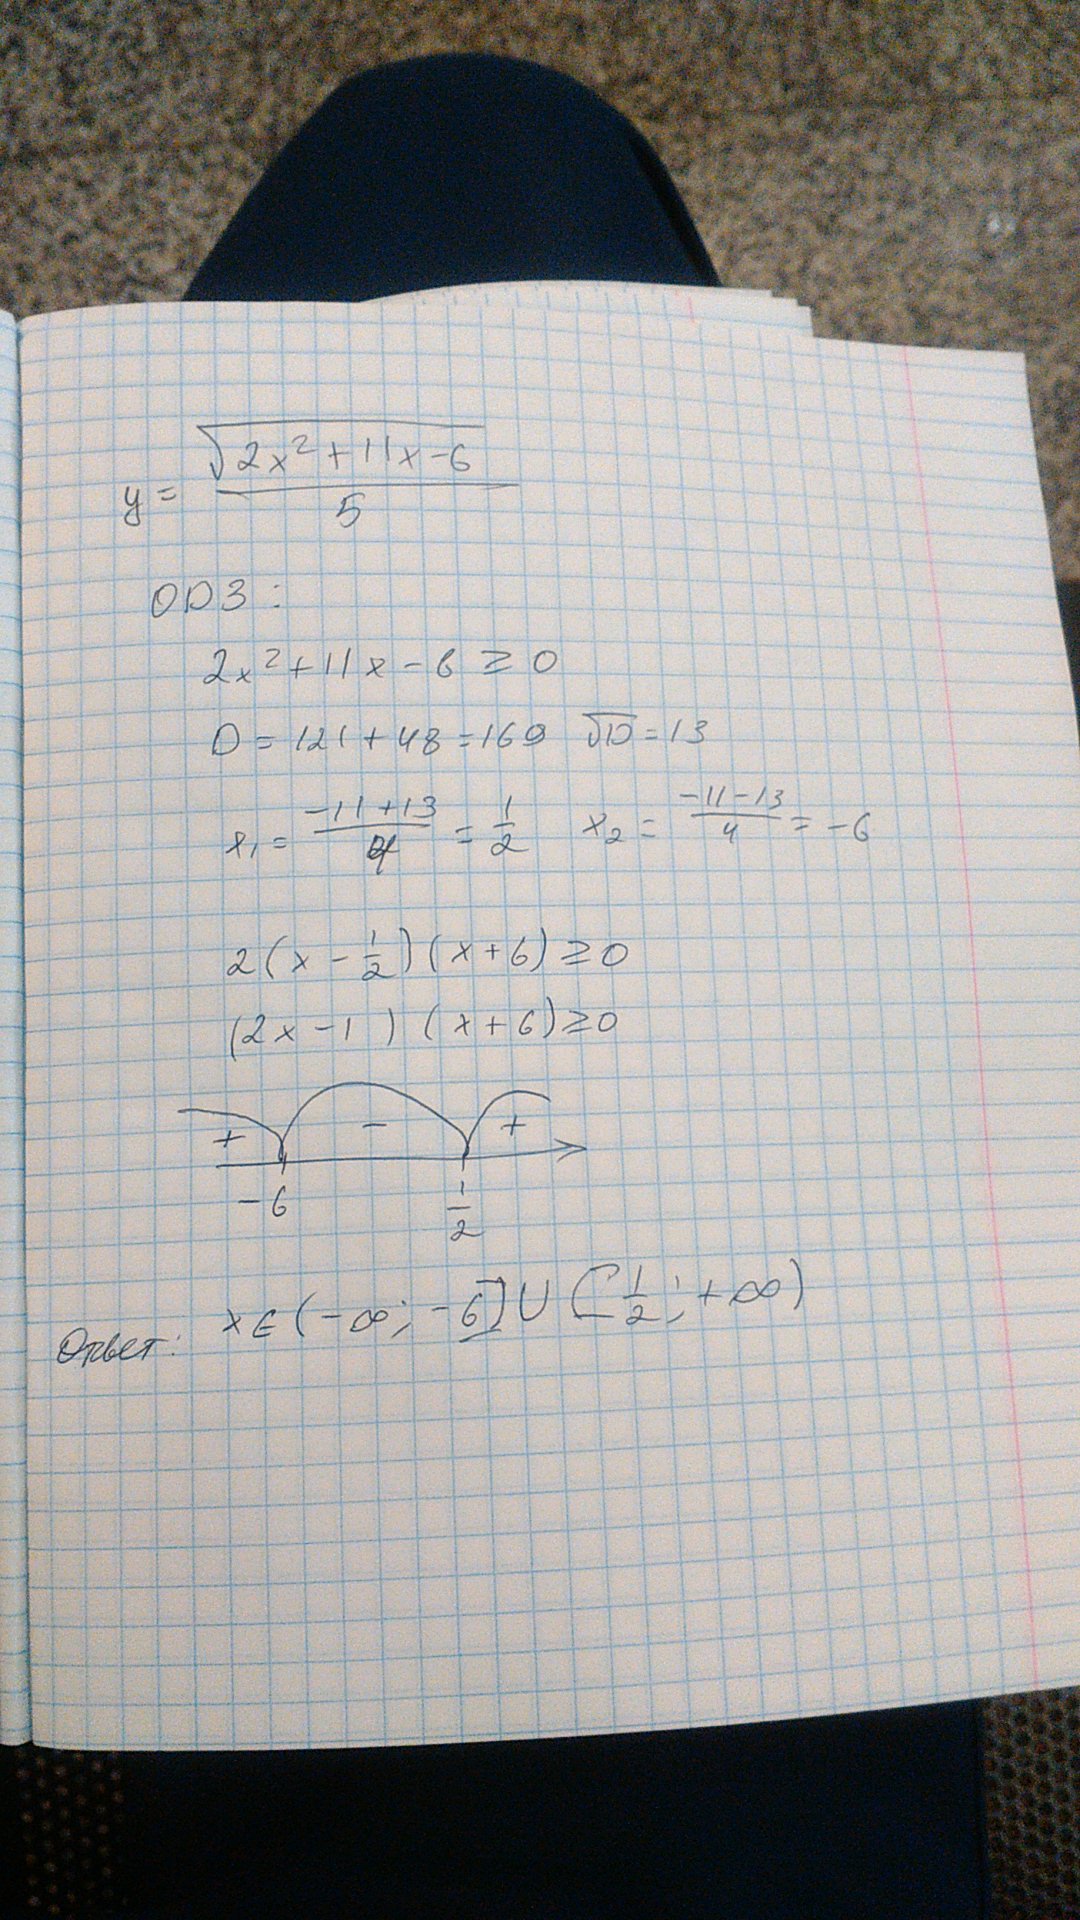 y = √(2x² + 11x - 6) / 5
ОДЗ:
2x² + 11x - 6 ≥ 0
D = 121 + 48 = 169 √D = 13
x₁ = (-11 + 13) / 4 = 1/2 x₂ = (-11 - 13) / 4 = -6
2(x - 1/2)(x + 6) ≥ 0
(2x - 1)(x + 6) ≥ 0
+ - +
-6 1/2
Ответ: x ∈ (-∞; -6] ∪ [1/2; +∞)